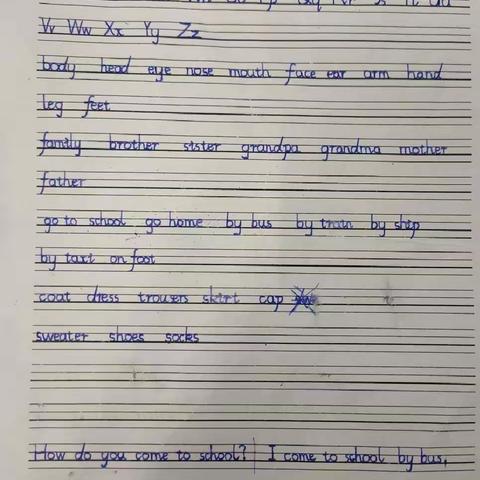 Vv Ww Xx Yy Zz
body head eye nose mouth face ear arm hand
leg feet
family brother sister grandpa grandma mother
father
go to school go home by bus by train by ship
by taxi on foot
coat dress trousers skirt cap
sweater shoes socks
How do you come to school? I come to school by bus,